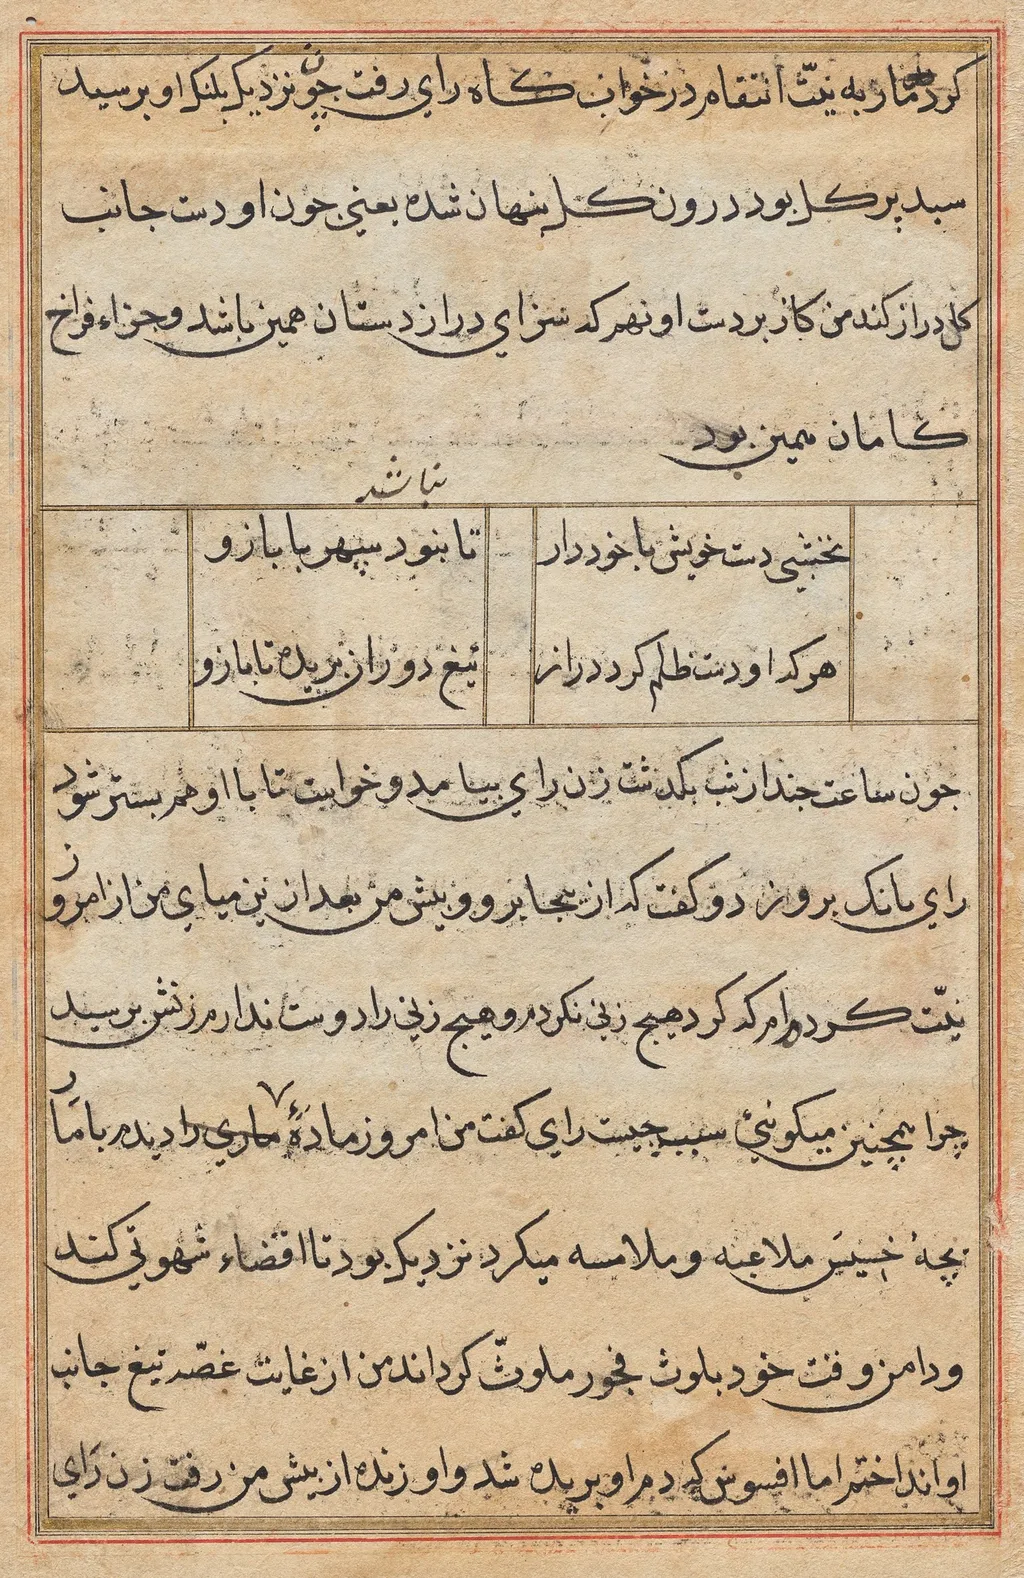 کرد مار به نیّت انتقام در خوابکاه رای رفت چون نزدیک بلنک او برسید
سبد پر کل بود درون کل پنهان شده یعنی جون او دست جانب
کل دراز کند من کاز بر دست او نهم که سزای دراز دستان همین باشد و جزاء فراخ
کامان همین بود
نباشد
نخشبی دست خویش با خود دار
تا بنود سپهر با بازو
هر که او دست ظلم کرد دراز
تیغ دوران بریده تا بازو
جون ساعت جند از شب بکذشت زن رای بیامد و خواست تا با او هم بستر شود
رای بانک برو زد و کفت که از ینجا برو و پیش من بعد ازین میای من از امروز
نیّت کرده‌ام که کرد هیچ زنی نکردم و هیچ زنی را دوست ندارم زنش برسید
چرا همچنین میکوئی سبب چیست رای کفت من امروز مادۀ ماری را دیدم با مار
بچۀ خسیس ملاعبه و ملامسه میکرد نزدیک بود تا اقضاء شهوتی کند
و دامن وقت خود بلوث فجور ملوّث کرداند من از غایت غصّه تیغ جانب
او انداختم اما افسوس که دم او بریده شد و او زنده از پیش من رفت زن رای